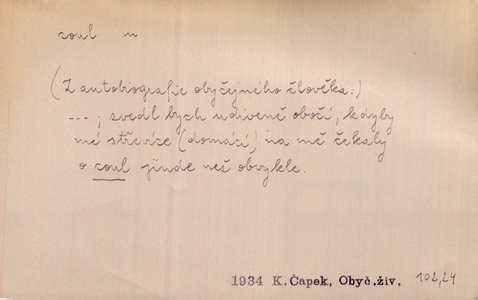 coul m
(Z autobiografie obyčejného člověka:)
---; zvedl bych udiveně obočí, kdyby
mé střevíce (domácí) na mě čekaly
o coul jinde než obvykle.
1934 K.Čapek, Obyč.živ. 102,24